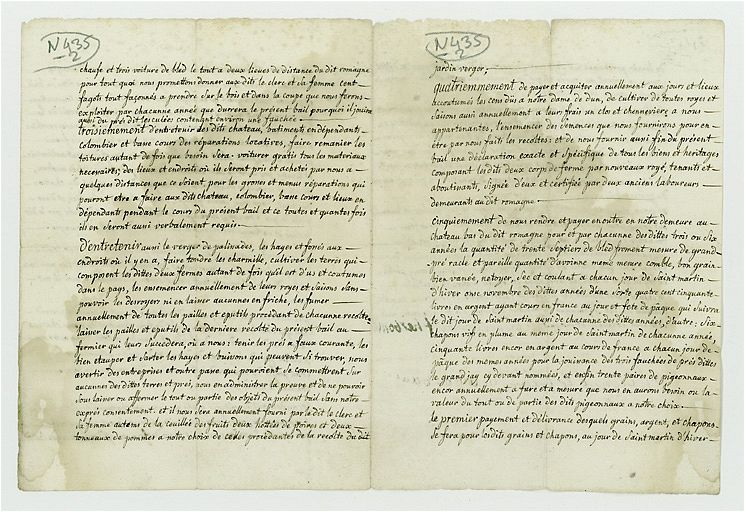 N 435
2
chaufe et trois voiture de bled le tout a deux lieues de distance du dit romagne
pour tout quoi nous promettons donner aux dits le clerc et sa femme cent
fagots tout façonnés a prendre sur le bois et dans la coupe que nous ferons
exploiter par chacunne année que durrera le présent bail pourquoi il jouira
aussi du pré dit les culées contenant environ une fauchée
troisiemement d'entretenir des dits chateau, batiments en dépendants
colombier et basse cour des réparations locatives, faire remanier les
toitures autant de fois que besoin sera. voiturer gratis tous les materiaux
necessaires, des lieux et endroits ou ils seront pris et achetés par nous a
quelques distances que ce soient, pour les grosses et menues réparations qui
pouront etre a faire aux dits chateau, colombier, basse cours et lieux en
dépendants pendant le cours du présent bail et ce toutes et quantes fois
ils en seront aussi verbalement requis
D'entretenir aussi le verger de palissades, les hayes et fossés aux
endroits ou il y en a, faire tondre les charmille, cultiver les terres qui
composent les dittes deux fermes autant de fois qu'il est d'us et coutumes
dans le pays, les ensemencer annuellement de leurs royes et saisons sans
pouvoir les desroyer ni en laisser aucunnes en friche, les fumer
annuellement de toutes les pailles et eputils procédant de chacunne recolte
laisser les pailles et eputils de la derniere récolte du présent bail au
fermier qui leurs succédera, où a nous; tenir les prés a faux courante, les
bien etauper et sarter les hayes et buissons qui peuvent si trouver, nous
avertir des entreprises et outre passe qui pouroient se commettrent sur
aucunnes des dittes terres et prés, nous en administrer la preuve et de ne pouvoir
sous laisser ou affermer le tout ou partie des objets du présent bail sans notre
exprés consentement. et il nous sera annuellement fourni par le dit le clerc et
sa femme autems de la ceuillée des fruits deux hottées de poires et deux
tonneaux de pommes a notre choix de celles procédantes de la recolte du dit
N 435
2
jardin verger;
quatriemmement de payer et acquiter annuellement aux jours et lieux
accoutumés les cens dus a notre dame de dun, de cultiver de toutes royes et
saisons aussi annuellement a leurs frais un clos et chenneviere a nous
appartenantes, l'ensemencer des semences que nous fournirons pour en
être par nous faits les recoltes: et de nous fournir aussi fin du présent
bail une déclaration exacte et spécifique de tous les biens et heritages
composant les dits deux corps de ferme par nouveaux royé, tenants et
aboutissants, signée d'eux et certifiée par deux anciens laboureurs
demeurants au dit romagne
Cinquiemement de nous rendre et payer en outre en notre demeure au
chateau bas du dit romagne pour et par chacunne des dittes trois ou six
années la quantité de trente septiers de bled froment mesure de grand
pré racle et pareille quantité d'avoinne meme mesure comble, bon grain
bien vanné, netoyer, sec et coulant a chacun jour de saint martin
d'hiver onse novembre des dittes années d'une sorte quatre cent cinquante
livres en argent ayant cours en france au jour et fete de pâque qui suivra
le dit jour de saint martin aussi de chacunne des dittes années, d'autre; six
chapons vifs en plume au meme jour de saint martin de chacunne année,
cinquante livres encor en argent au cours de france a chacun jour de
pâque des memes années pour la jouissance des trois fauchées de prés dittes
le grand jay cy devant nommées, et enfin trente paires de pigeonnaux
encor annuellement a fure et a mesure que nous en aurons besoin ou la
valeur du tout ou de partie des dits pigeonnaux a notre choix
le premier payement et délivrance desquels grains, argent, et chapons
se fera pour les dits grains et chapons, au jour de saint martin d'hiver